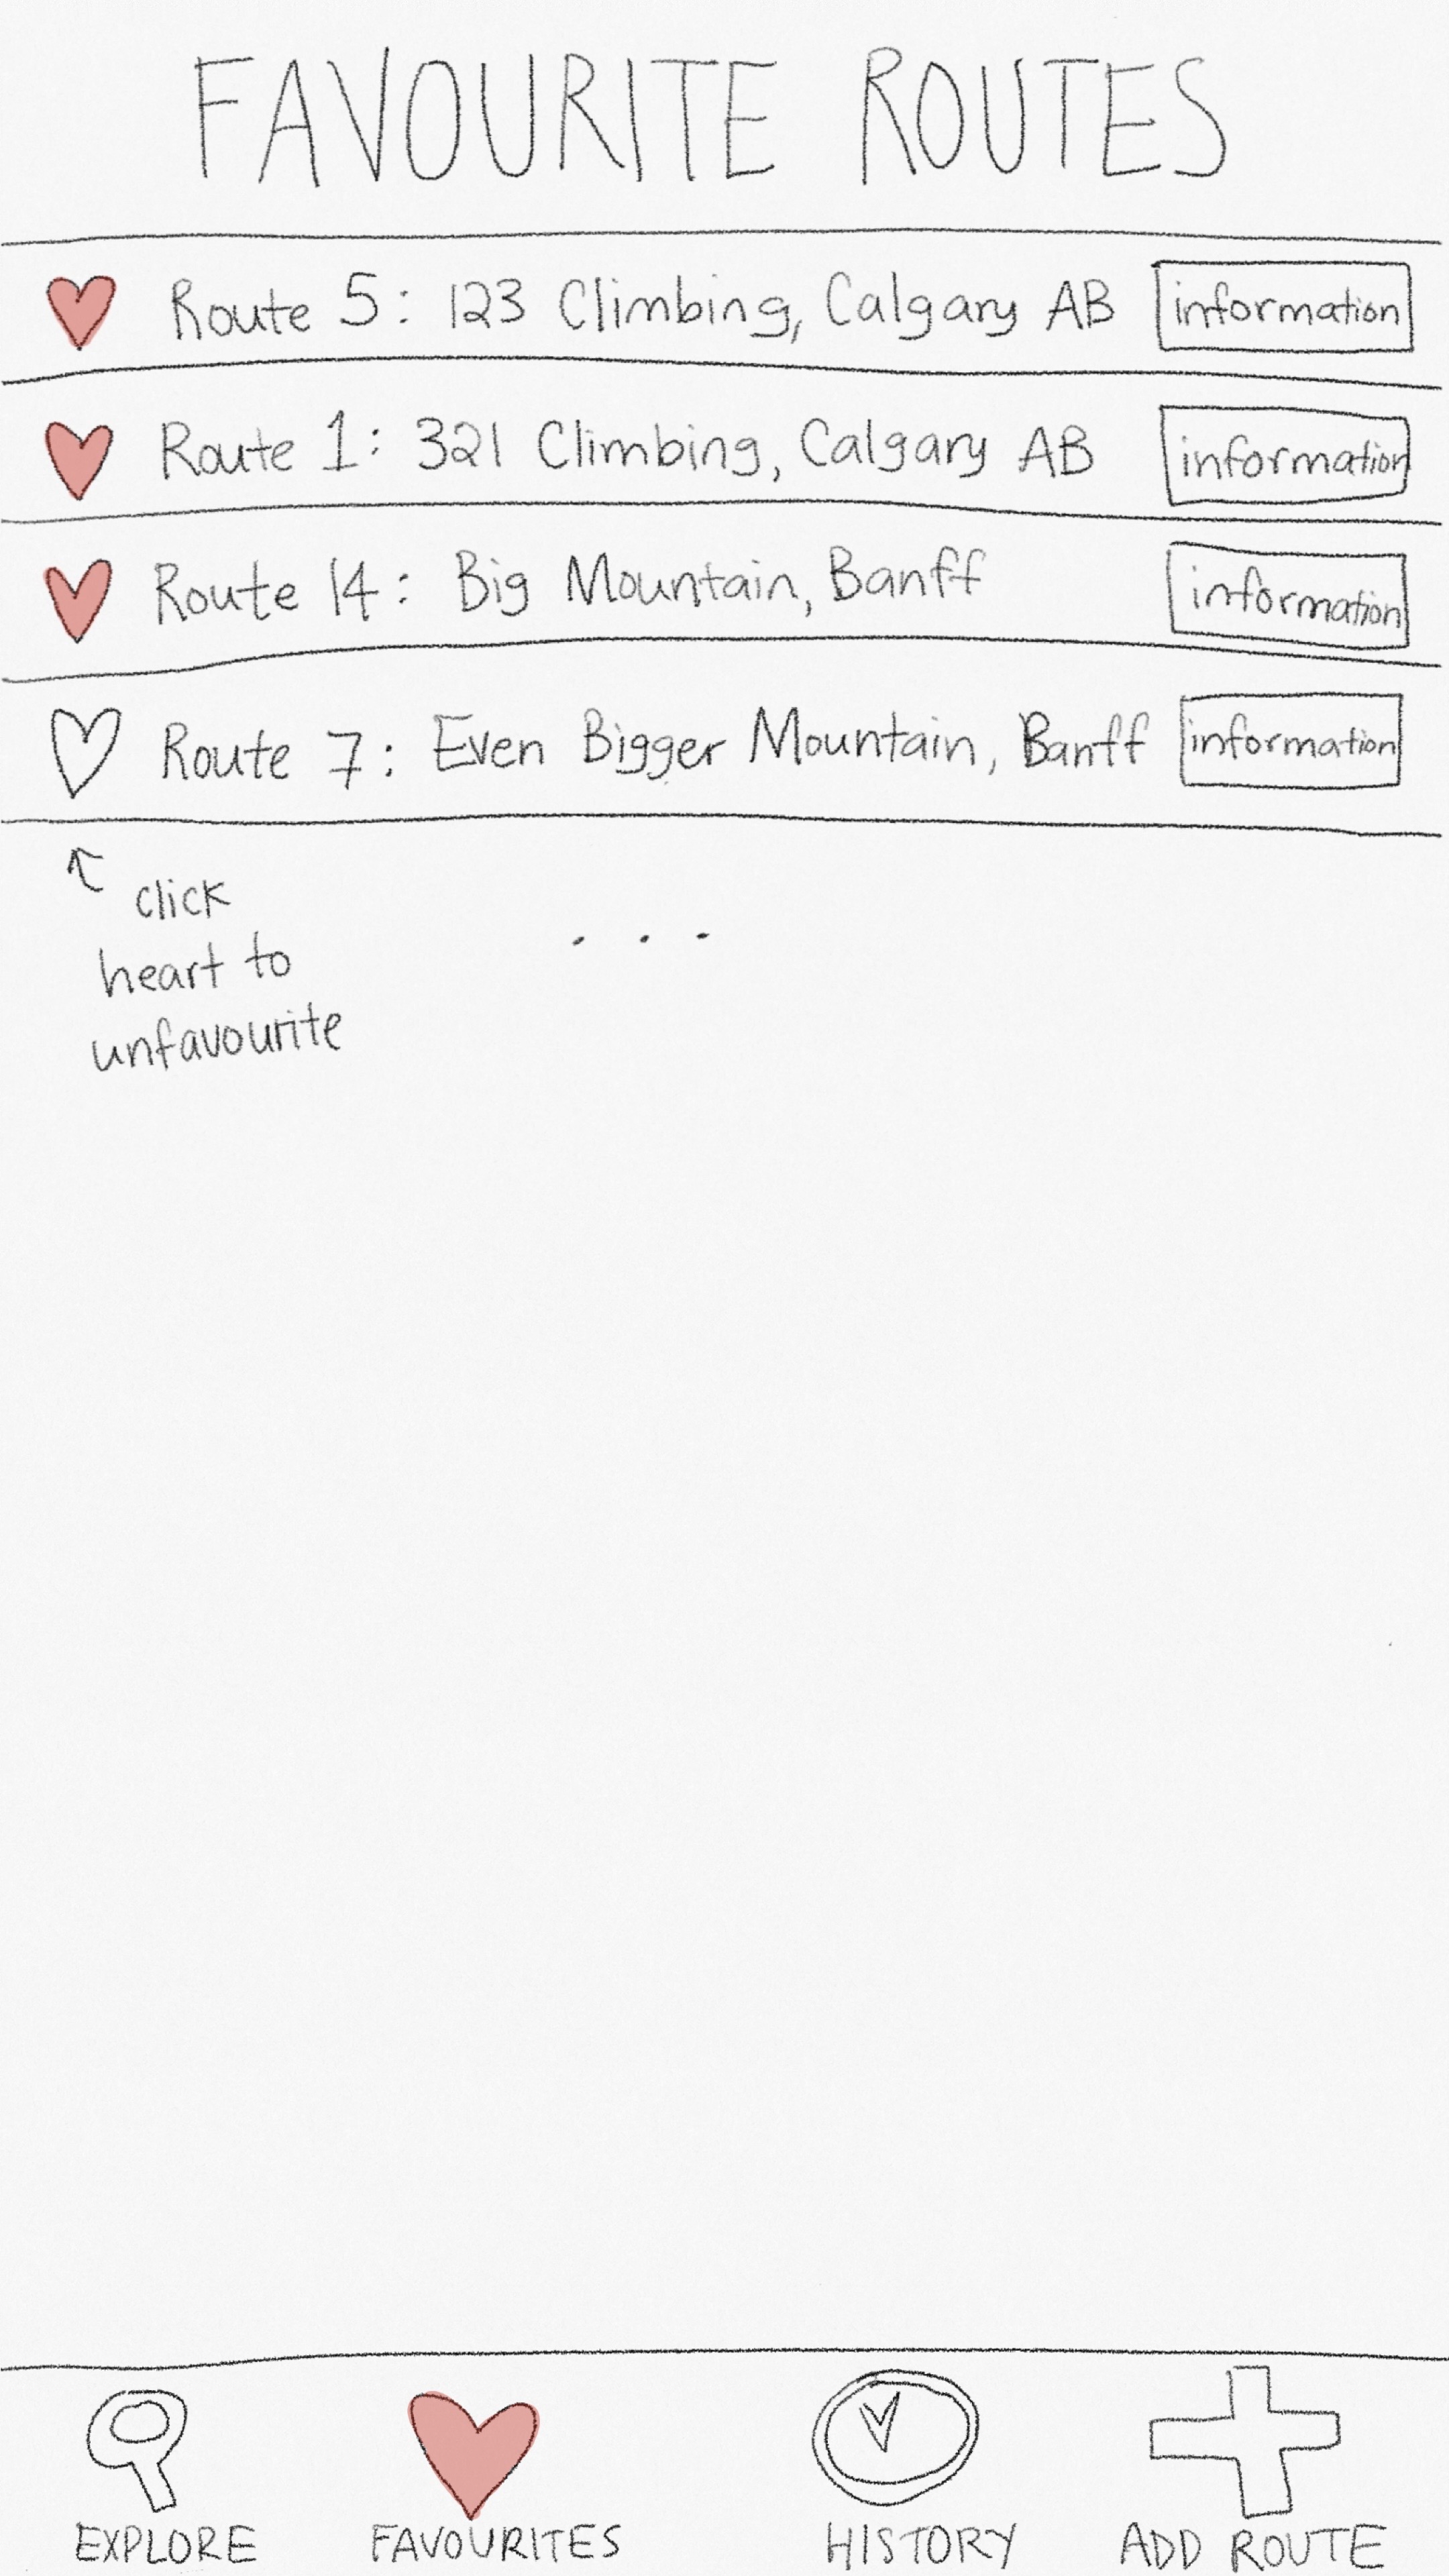 FAVOURITE ROUTES
Route 5: 123 Climbing, Calgary AB information
Route 1: 321 Climbing, Calgary AB information
Route 14: Big Mountain, Banff information
Route 7: Even Bigger Mountain, Banff information
click
heart to
unfavourite
. . .
EXPLORE FAVOURITES HISTORY ADD ROUTE